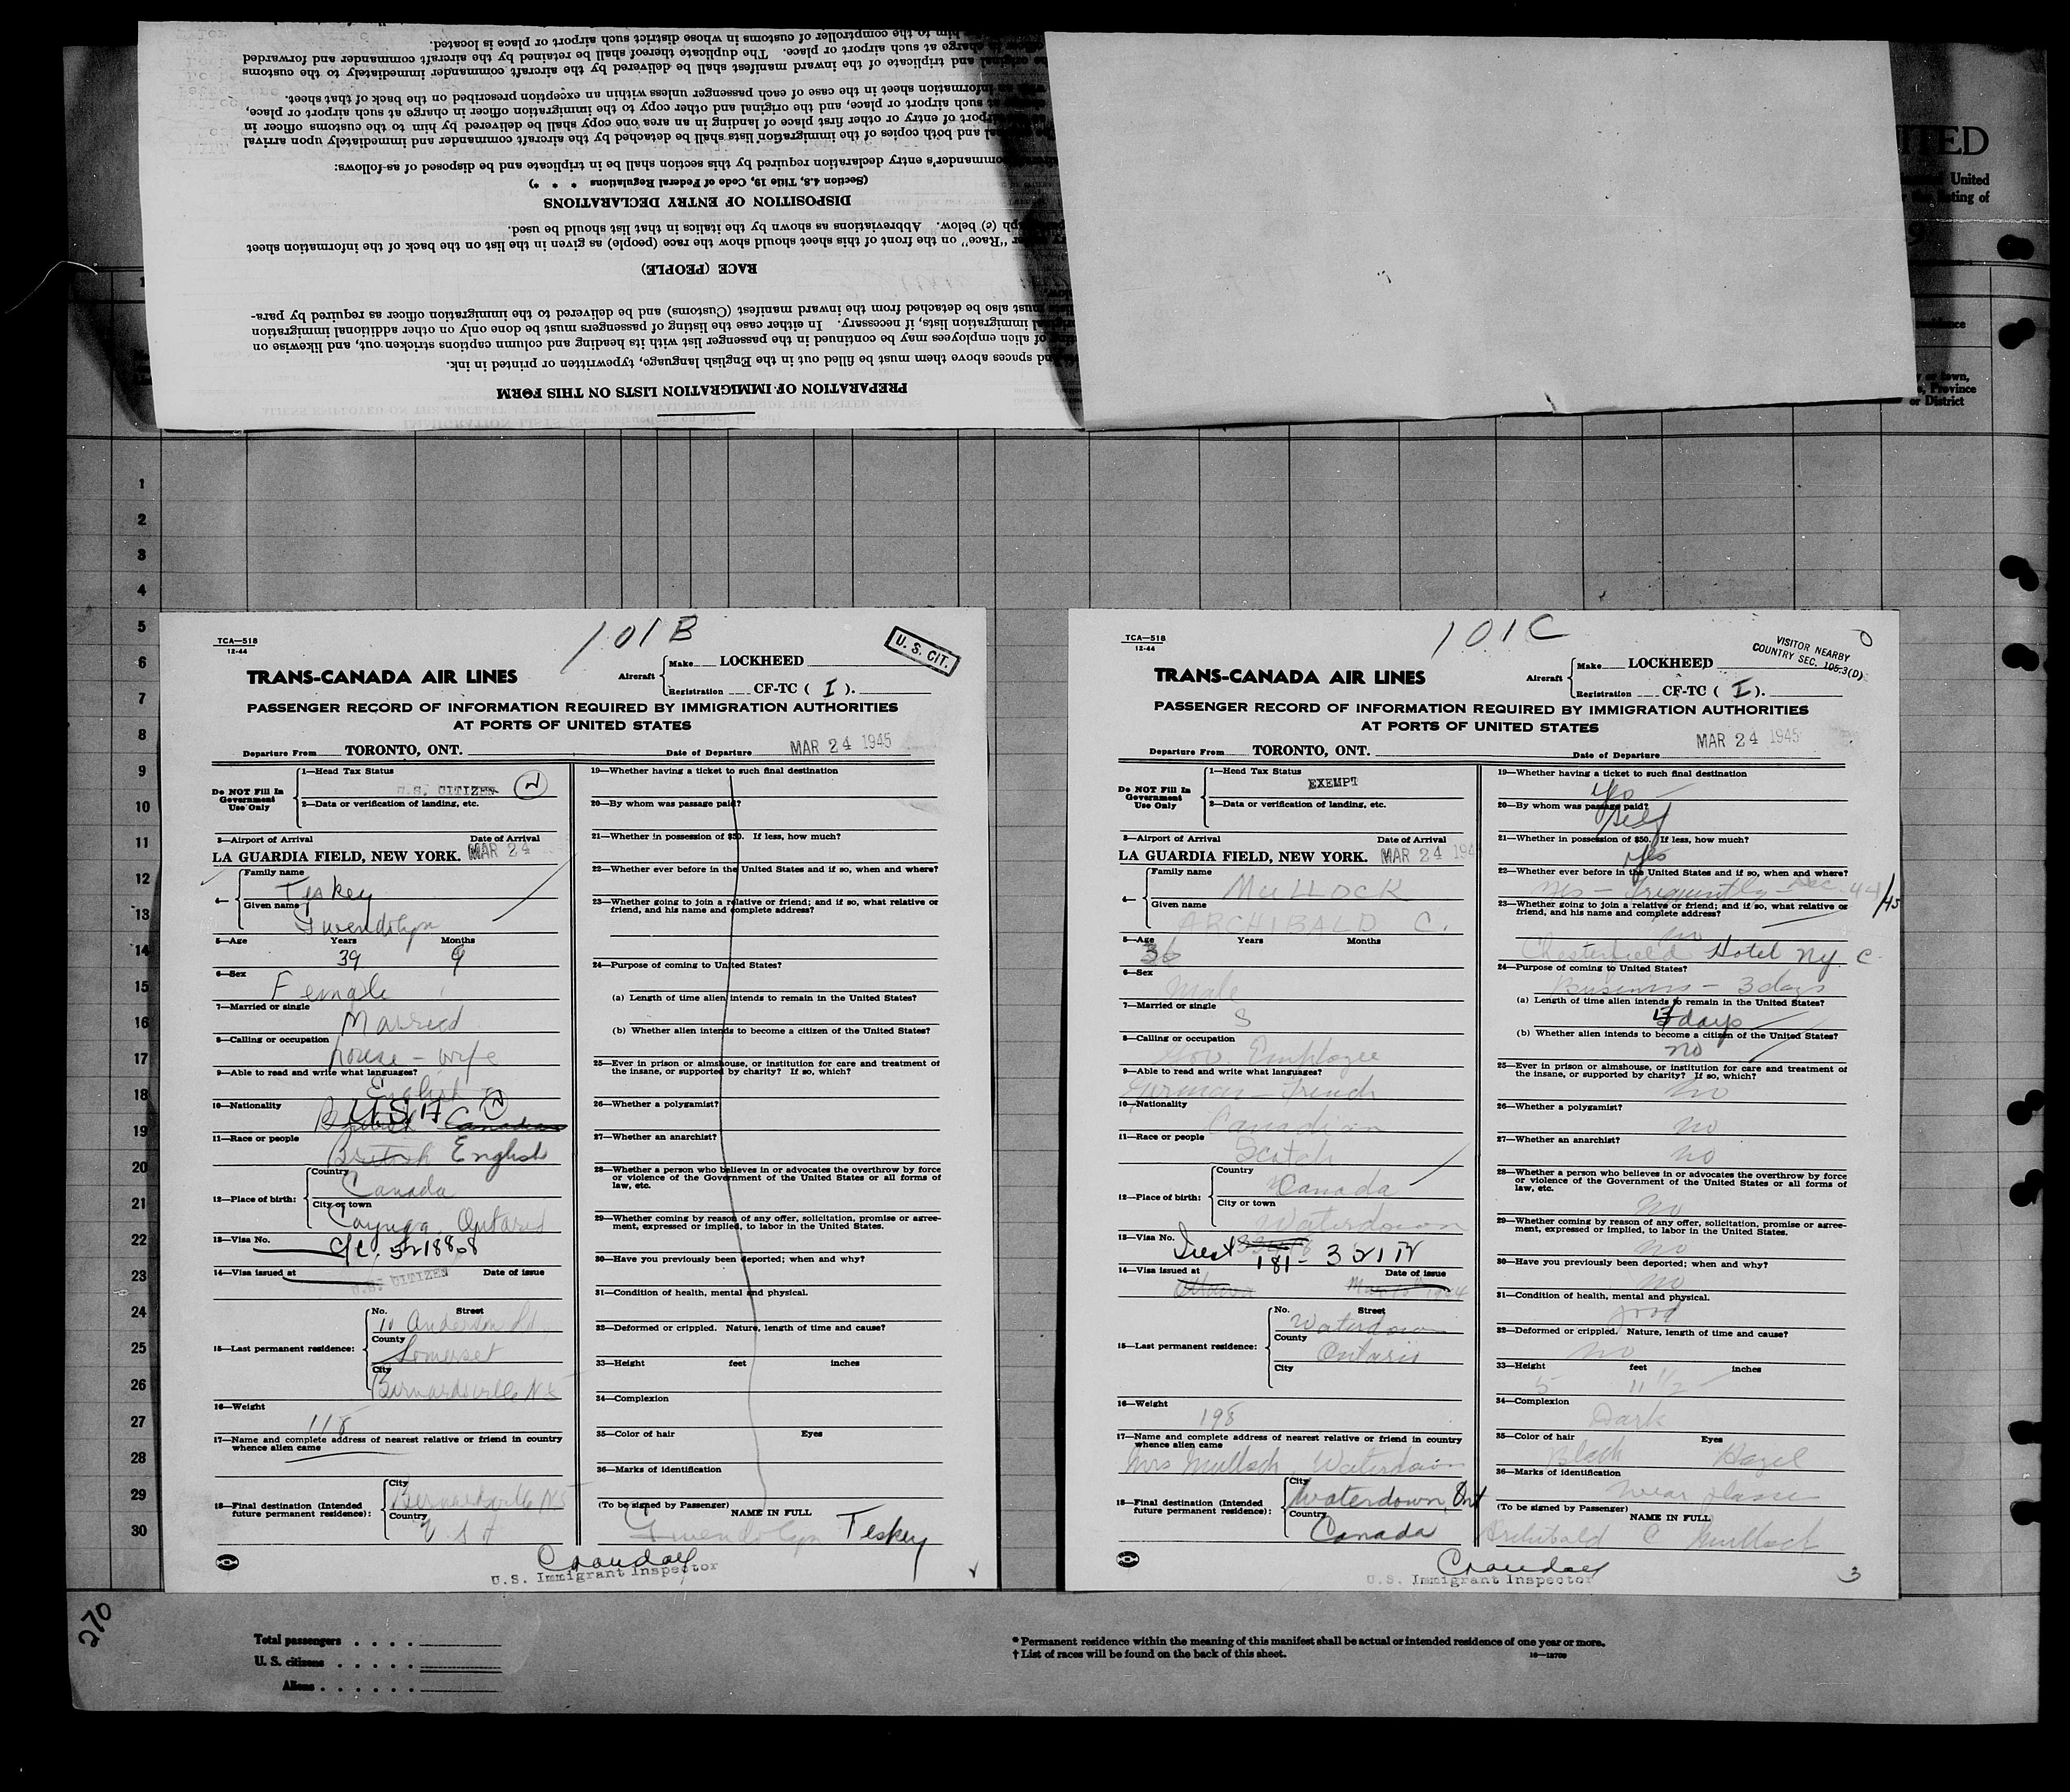 him to the comptroller of customs in whose district such airport or place is located.
charge at such airport or place. The duplicate thereof shall be retained by the aircraft commander and forwarded
original and triplicate of the inward manifest shall be delivered by the aircraft commander immediately to the customs
information sheet in the case of each passenger unless within an exception prescribed on the back of that sheet.
at such airport or place, and the original and other copy to the immigration officer in charge at such airport or place,
port of entry or other first place of landing in an area one copy shall be delivered by him to the customs officer in
and both copies of the immigration lists shall be detached by the aircraft commander and immediately upon arrival
commander's entry declaration required by this section shall be in triplicate and disposed of as follows:
(Section 4.8, Title 19, Code of Federal Regulations * * *)
DISPOSITION OF ENTRY DECLARATIONS
(c) below. Abbreviations as shown by the italics in that list should be used.
"Race" on the front of this sheet should show the race (people) as given in the list on the back of the information sheet
RACE (PEOPLE)
must also be detached from the inward manifest (Customs) and be delivered to the immigration officer as required by para-
immigration lists, if necessary. In either case the listing of passengers must be done only on other additional immigration
of alien employees may be continued in the passenger list with its heading and column captions stricken out, and likewise on
and spaces above them must be filled out in the English language, typewritten or printed in ink.
PREPARATION OF IMMIGRATION LISTS ON THIS FORM
United
listing of
town,
Province
or District
1
2
3
4
5
6
7
8
9
10
11
12
13
14
15
16
17
18
19
20
21
22
23
24
25
26
27
28
29
30
TCA—518
12-44
101B
U. S. CIT.
TRANS-CANADA AIR LINES
Aircraft
Make LOCKHEED
Registration CF-TC ( I ).
PASSENGER RECORD OF INFORMATION REQUIRED BY IMMIGRATION AUTHORITIES
AT PORTS OF UNITED STATES
Departure From TORONTO, ONT. Date of Departure MAR 24 1945
Do NOT Fill In Government Use Only
1—Head Tax Status
U.S. CITIZEN
2—Data or verification of landing, etc.
3—Airport of Arrival Date of Arrival
LA GUARDIA FIELD, NEW YORK. MAR 24
4— Family name
Teskey
Given name
Gwendolyn
5—Age Years Months
39 9
6—Sex
Female
7—Married or single
Married
8—Calling or occupation
house - wife
9—Able to read and write what languages?
English
10—Nationality
British USA Canadian
11—Race or people
British English
12—Place of birth: Country
Canada
City or town
Cayuga, Ontario
13—Visa No.
C/C. 5218808
14—Visa issued at Date of issue
U.S. CITIZEN
15—Last permanent residence: No. Street
10 Anderson Rd.
County
Somerset
City
Bernardsville NJ
16—Weight
118
17—Name and complete address of nearest relative or friend in country
whence alien came
18—Final destination (Intended
future permanent residence): City
Bernardsville NJ
Country
U S A
19—Whether having a ticket to such final destination
20—By whom was passage paid?
21—Whether in possession of $50. If less, how much?
22—Whether ever before in the United States and if so, when and where?
23—Whether going to join a relative or friend; and if so, what relative or
friend, and his name and complete address?
24—Purpose of coming to United States?
(a) Length of time alien intends to remain in the United States?
(b) Whether alien intends to become a citizen of the United States?
25—Ever in prison or almshouse, or institution for care and treatment of
the insane, or supported by charity? If so, which?
26—Whether a polygamist?
27—Whether an anarchist?
28—Whether a person who believes in or advocates the overthrow by force
or violence of the Government of the United States or all forms of
law, etc.
29—Whether coming by reason of any offer, solicitation, promise or agree-
ment, expressed or implied, to labor in the United States.
30—Have you previously been deported; when and why?
31—Condition of health, mental and physical.
32—Deformed or crippled. Nature, length of time and cause?
33—Height feet inches
34—Complexion
35—Color of hair Eyes
36—Marks of identification
(To be signed by Passenger) NAME IN FULL
Gwendolyn Teskey
U.S. Immigrant Inspector
TCA—518
12-44
101C
VISITOR NEARBY
COUNTRY SEC. 105.3(D)
TRANS-CANADA AIR LINES
Aircraft
Make LOCKHEED
Registration CF-TC ( I ).
PASSENGER RECORD OF INFORMATION REQUIRED BY IMMIGRATION AUTHORITIES
AT PORTS OF UNITED STATES
Departure From TORONTO, ONT. Date of Departure MAR 24 1945
Do NOT Fill In Government Use Only
1—Head Tax Status
EXEMPT
2—Data or verification of landing, etc.
3—Airport of Arrival Date of Arrival
LA GUARDIA FIELD, NEW YORK. MAR 24 194
4— Family name
MULLOCK
Given name
ARCHIBALD C.
5—Age Years Months
36
6—Sex
Male
7—Married or single
S
8—Calling or occupation
Gov. Employee
9—Able to read and write what languages?
German - French
10—Nationality
Canadian
11—Race or people
Scotch
12—Place of birth: Country
Canada
City or town
Waterdown
13—Visa No.
181 - 321
14—Visa issued at Date of issue
Ottawa
15—Last permanent residence: No. Street
Waterdown
County
Ontario
City
16—Weight
198
17—Name and complete address of nearest relative or friend in country
whence alien came
Mrs Mullock Waterdown
18—Final destination (Intended
future permanent residence): City
Waterdown, Ont
Country
Canada
19—Whether having a ticket to such final destination
Yes
20—By whom was passage paid?
Self
21—Whether in possession of $50. If less, how much?
Yes
22—Whether ever before in the United States and if so, when and where?
Yes - Frequently - Dec. 44
23—Whether going to join a relative or friend; and if so, what relative or
friend, and his name and complete address?
no
Chesterfield Hotel NY. C.
24—Purpose of coming to United States?
Business - 3 days
(a) Length of time alien intends to remain in the United States?
days
(b) Whether alien intends to become a citizen of the United States?
no
25—Ever in prison or almshouse, or institution for care and treatment of
the insane, or supported by charity? If so, which?
no
26—Whether a polygamist?
no
27—Whether an anarchist?
no
28—Whether a person who believes in or advocates the overthrow by force
or violence of the Government of the United States or all forms of
law, etc.
no
29—Whether coming by reason of any offer, solicitation, promise or agree-
ment, expressed or implied, to labor in the United States.
no
30—Have you previously been deported; when and why?
no
31—Condition of health, mental and physical.
good
32—Deformed or crippled. Nature, length of time and cause?
no
33—Height feet inches
5 11 1/2
34—Complexion
Dark
35—Color of hair Eyes
Black Hazel
36—Marks of identification
wear glasses
(To be signed by Passenger) NAME IN FULL
Archibald C Mullock
U.S. Immigrant Inspector
3
270
Total passengers . . . .
U. S. citizens . . . . .
Aliens . . . . . .
* Permanent residence within the meaning of this manifest shall be actual or intended residence of one year or more.
† List of races will be found on the back of this sheet.